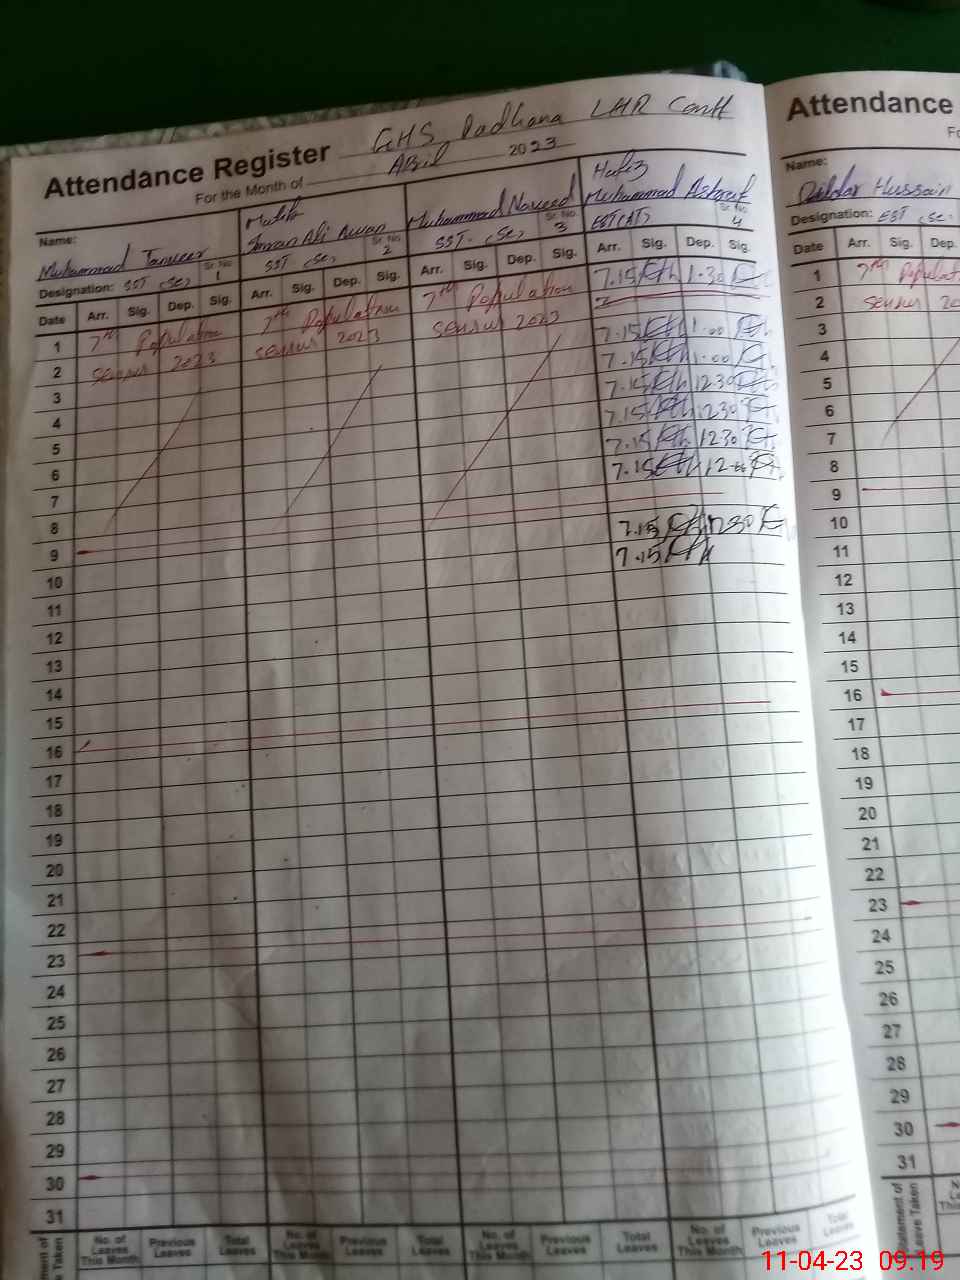 Attendance Register GHS Dadhana LHR Cantt
For the Month of April 2023
Name: Muhammad Tanveer
Malik Imran Ali Awan
Muhammad Naveed
Hafiz Muhammad Ashraf
Designation: SST (Sc) Sr. No. 1
SST (Sc) Sr. No. 2
SST. (Sc) Sr. No. 3
EST(AT) Sr. No. 4
Date Arr. Sig. Dep. Sig. Arr. Sig. Dep. Sig. Arr. Sig. Dep. Sig. Arr. Sig. Dep. Sig.
1 7th Population 7th Population 7th Population 7.15 1.30
2 sensus 2023 sensus 2023 sensus 2023
3 7.15 1.00
4 7.15 1.00
5 7.15 12.30
6 7.15 12.30
7 7.15 12.30
8 7.15 12.00
9
10 7.15 12.30
11 7.15
12
13
14
15
16
17
18
19
20
21
22
23
24
25
26
27
28
29
30
31
No. of Leaves This Month Previous Leaves Total Leaves No. of Leaves This Month Previous Leaves Total Leaves No. of Leaves This Month Previous Leaves Total Leaves No. of Leaves This Month Previous Leaves Total Leaves
Attendance
Name:
Dildar Hussain
Designation: EST (Sc)
Date Arr. Sig. Dep.
1 7th Populat
2 sensus 20
3
4
5
6
7
8
9
10
11
12
13
14
15
16
17
18
19
20
21
22
23
24
25
26
27
28
29
30
31
11-04-23 09.19